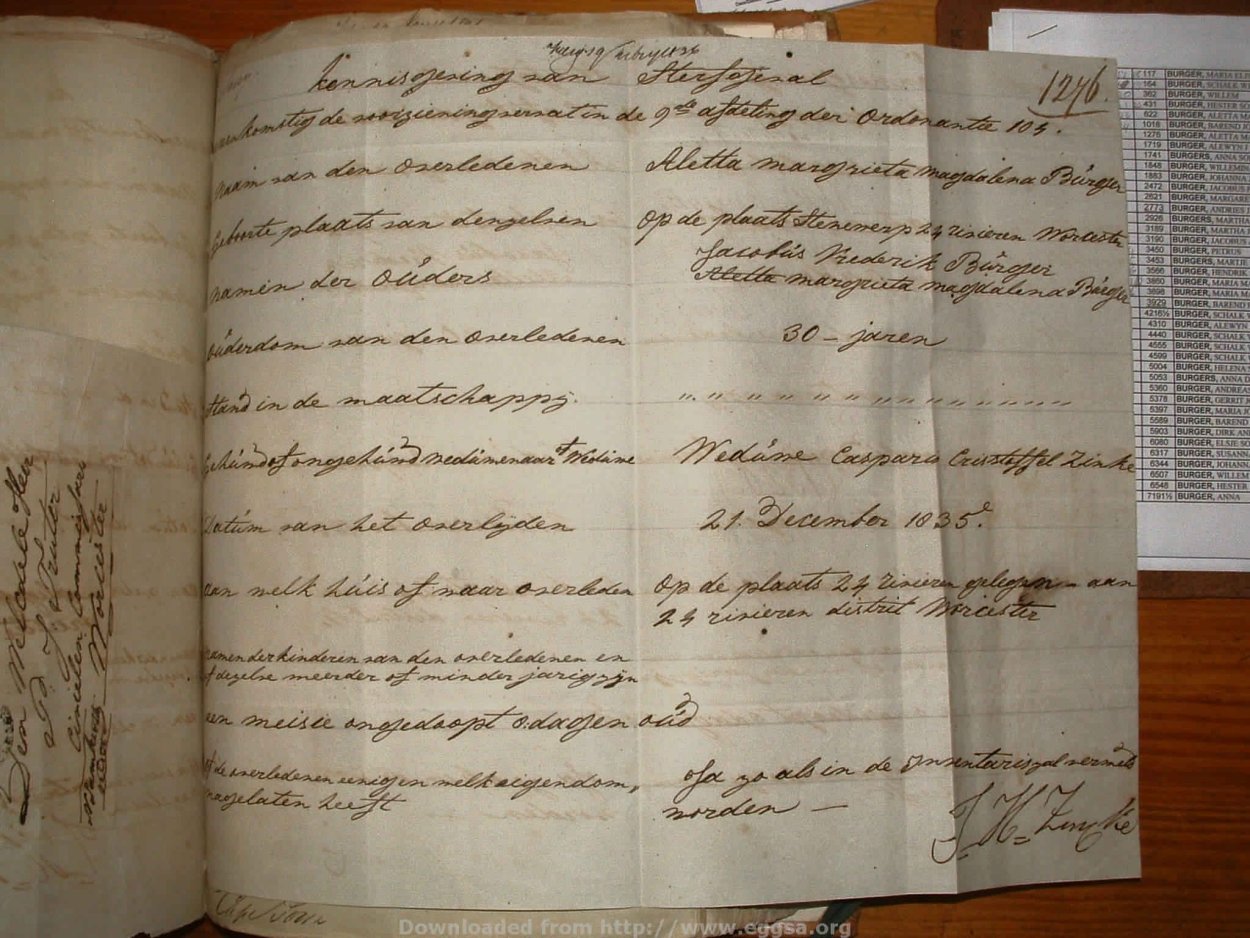 kennisgeving van Sterfgeval
1276.
overeenkomstig de voorziening vervat in de 9de afdeling der Ordonantie 104.
Naam van den Overledenen Aletta margrieta magdalena Búrger
Geboorte plaats van denzelven Op de plaats Stenewerp 24 rivieren Worcester
Namen der Oúders Jacobús Frederik Búrger
Aletta margrieta magdalena Búrger
Oúderdom van den Overledenen 30 – jaren
Stand in de maatschappÿ. " " " " " " " " " " " " "
Gehúwd of ongehúwd Wedúwenaar of Wedúwe Wedúwe Casparis Cristoffel Zinke
Datúm van het Overlijden 21. December 1835.
aan welk húis of waar overleden Op de plaats 24 rivieren gelegen – aan
24 rivieren distrit Worcester
namen der kinderen van den overledenen en
of dezelve meerder of minder jarig zÿn
een meisie ongedoopt 8 dagen oúd
of de overledenen eenig en welk eigendom, Ja zo als in de Inventaris zal vermeld
nagelaten heeft worden —
J H Zinke
Den Weledele Heer
P. J. Truter
Civielen Commissaris
Worcester
117 BURGER, MARIA
164 BURGER, SCHALK
362 BURGER, WILLEM
431 BURGER, HESTER
622 BURGER, ALETTA
1018 BURGER, BAREND
1276 BURGER, ALETTA
1719 BURGER, ALEWYN
1741 BURGERS, ANNA
1848 BURGER,
1883 BURGER, JOHANNA
2472 BURGER, JACOBUS
2621 BURGER,
2773 BURGER, ANDRIES
2926 BURGERS, MARTHA
3189 BURGER, MARTHA
3190 BURGER, JACOBUS
3450 BURGER, PETRUS
3453 BURGERS, MARTJE
3566 BURGER, HENDRIK
3860 BURGER, MARIA
3898 BURGER, MARIA
3929 BURGER, BAREND
4216½ BURGER, SCHALK
4310 BURGER, ALEWYN
4440 BURGER, SCHALK
4555 BURGER, SCHALK
4599 BURGER, SCHALK
5004 BURGER, HELENA
5053 BURGERS, ANNA
5360 BURGER, ANDREA
5378 BURGER, GERRIT
5397 BURGER, MARIA
5589 BURGER, BAREND
5903 BURGER, DIRK
6080 BURGER, ELSIE
6317 BURGER, SUSANN
6344 BURGER, JOHANN
6507 BURGER, WILLEM
6548 BURGER, HESTER
7191½ BURGER, ANNA
Downloaded from http://www.eggsa.org